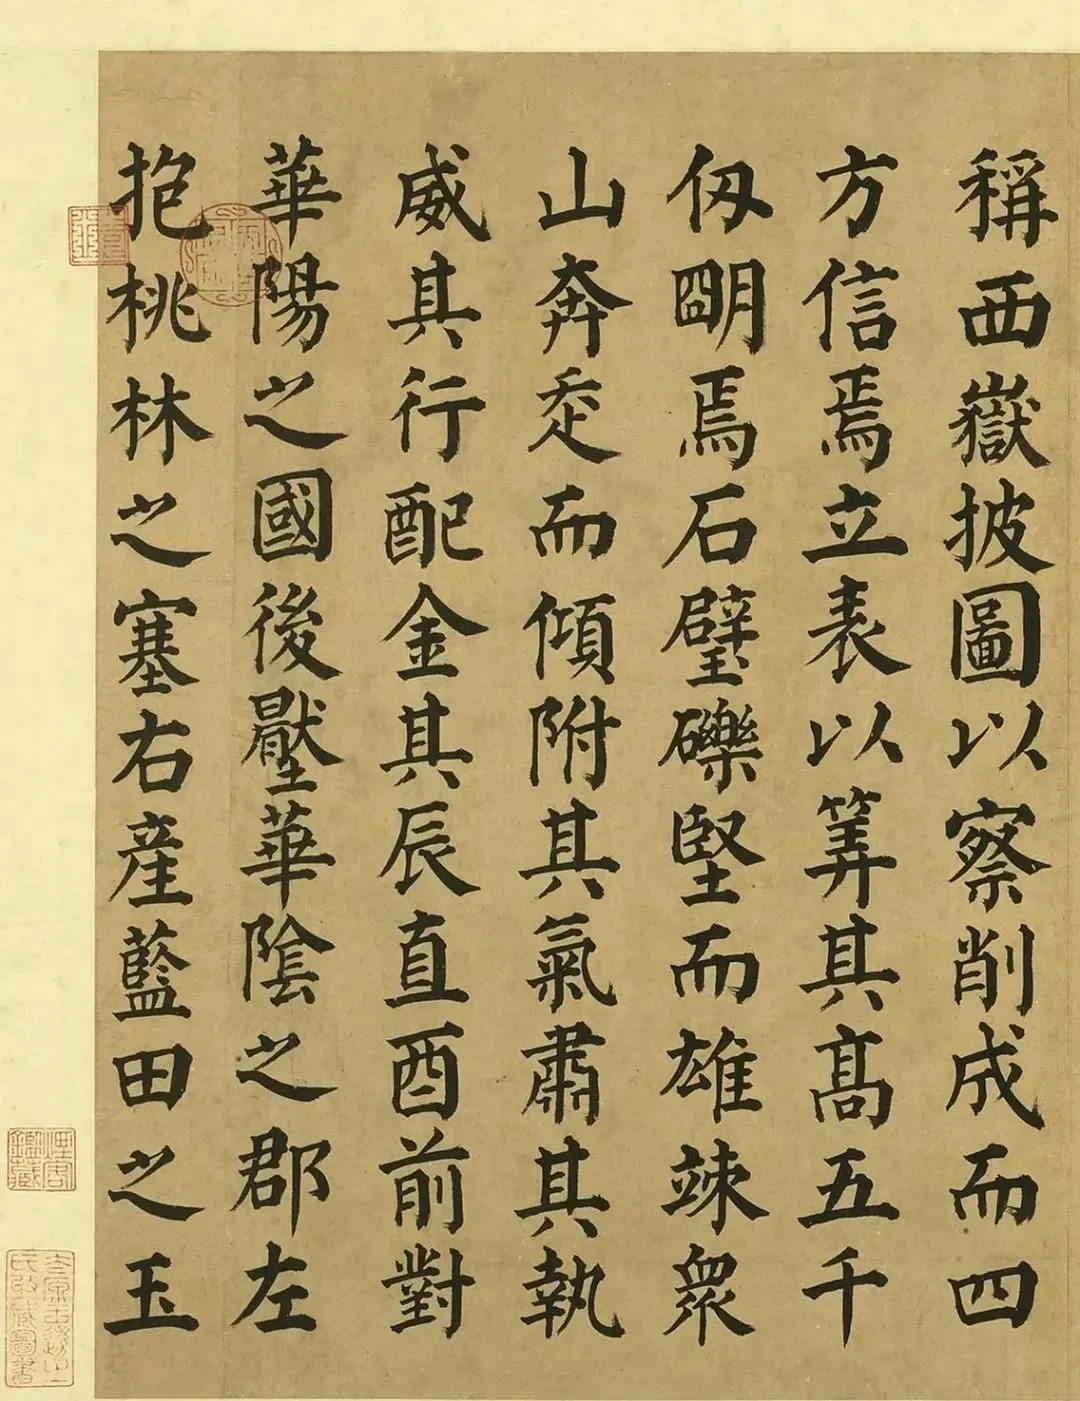 稱西嶽披圖以察削成而四
方信焉立表以筭其髙五千
仭朙焉石壁礫堅而雄竦衆
山奔走而傾附其氣肅其執
威其行配金其辰直酉前對
華陽之國後壓華陰之郡左
抱桃林之塞右産藍田之玉
煙客
鑑藏
太原王遜之
氏收藏圖書